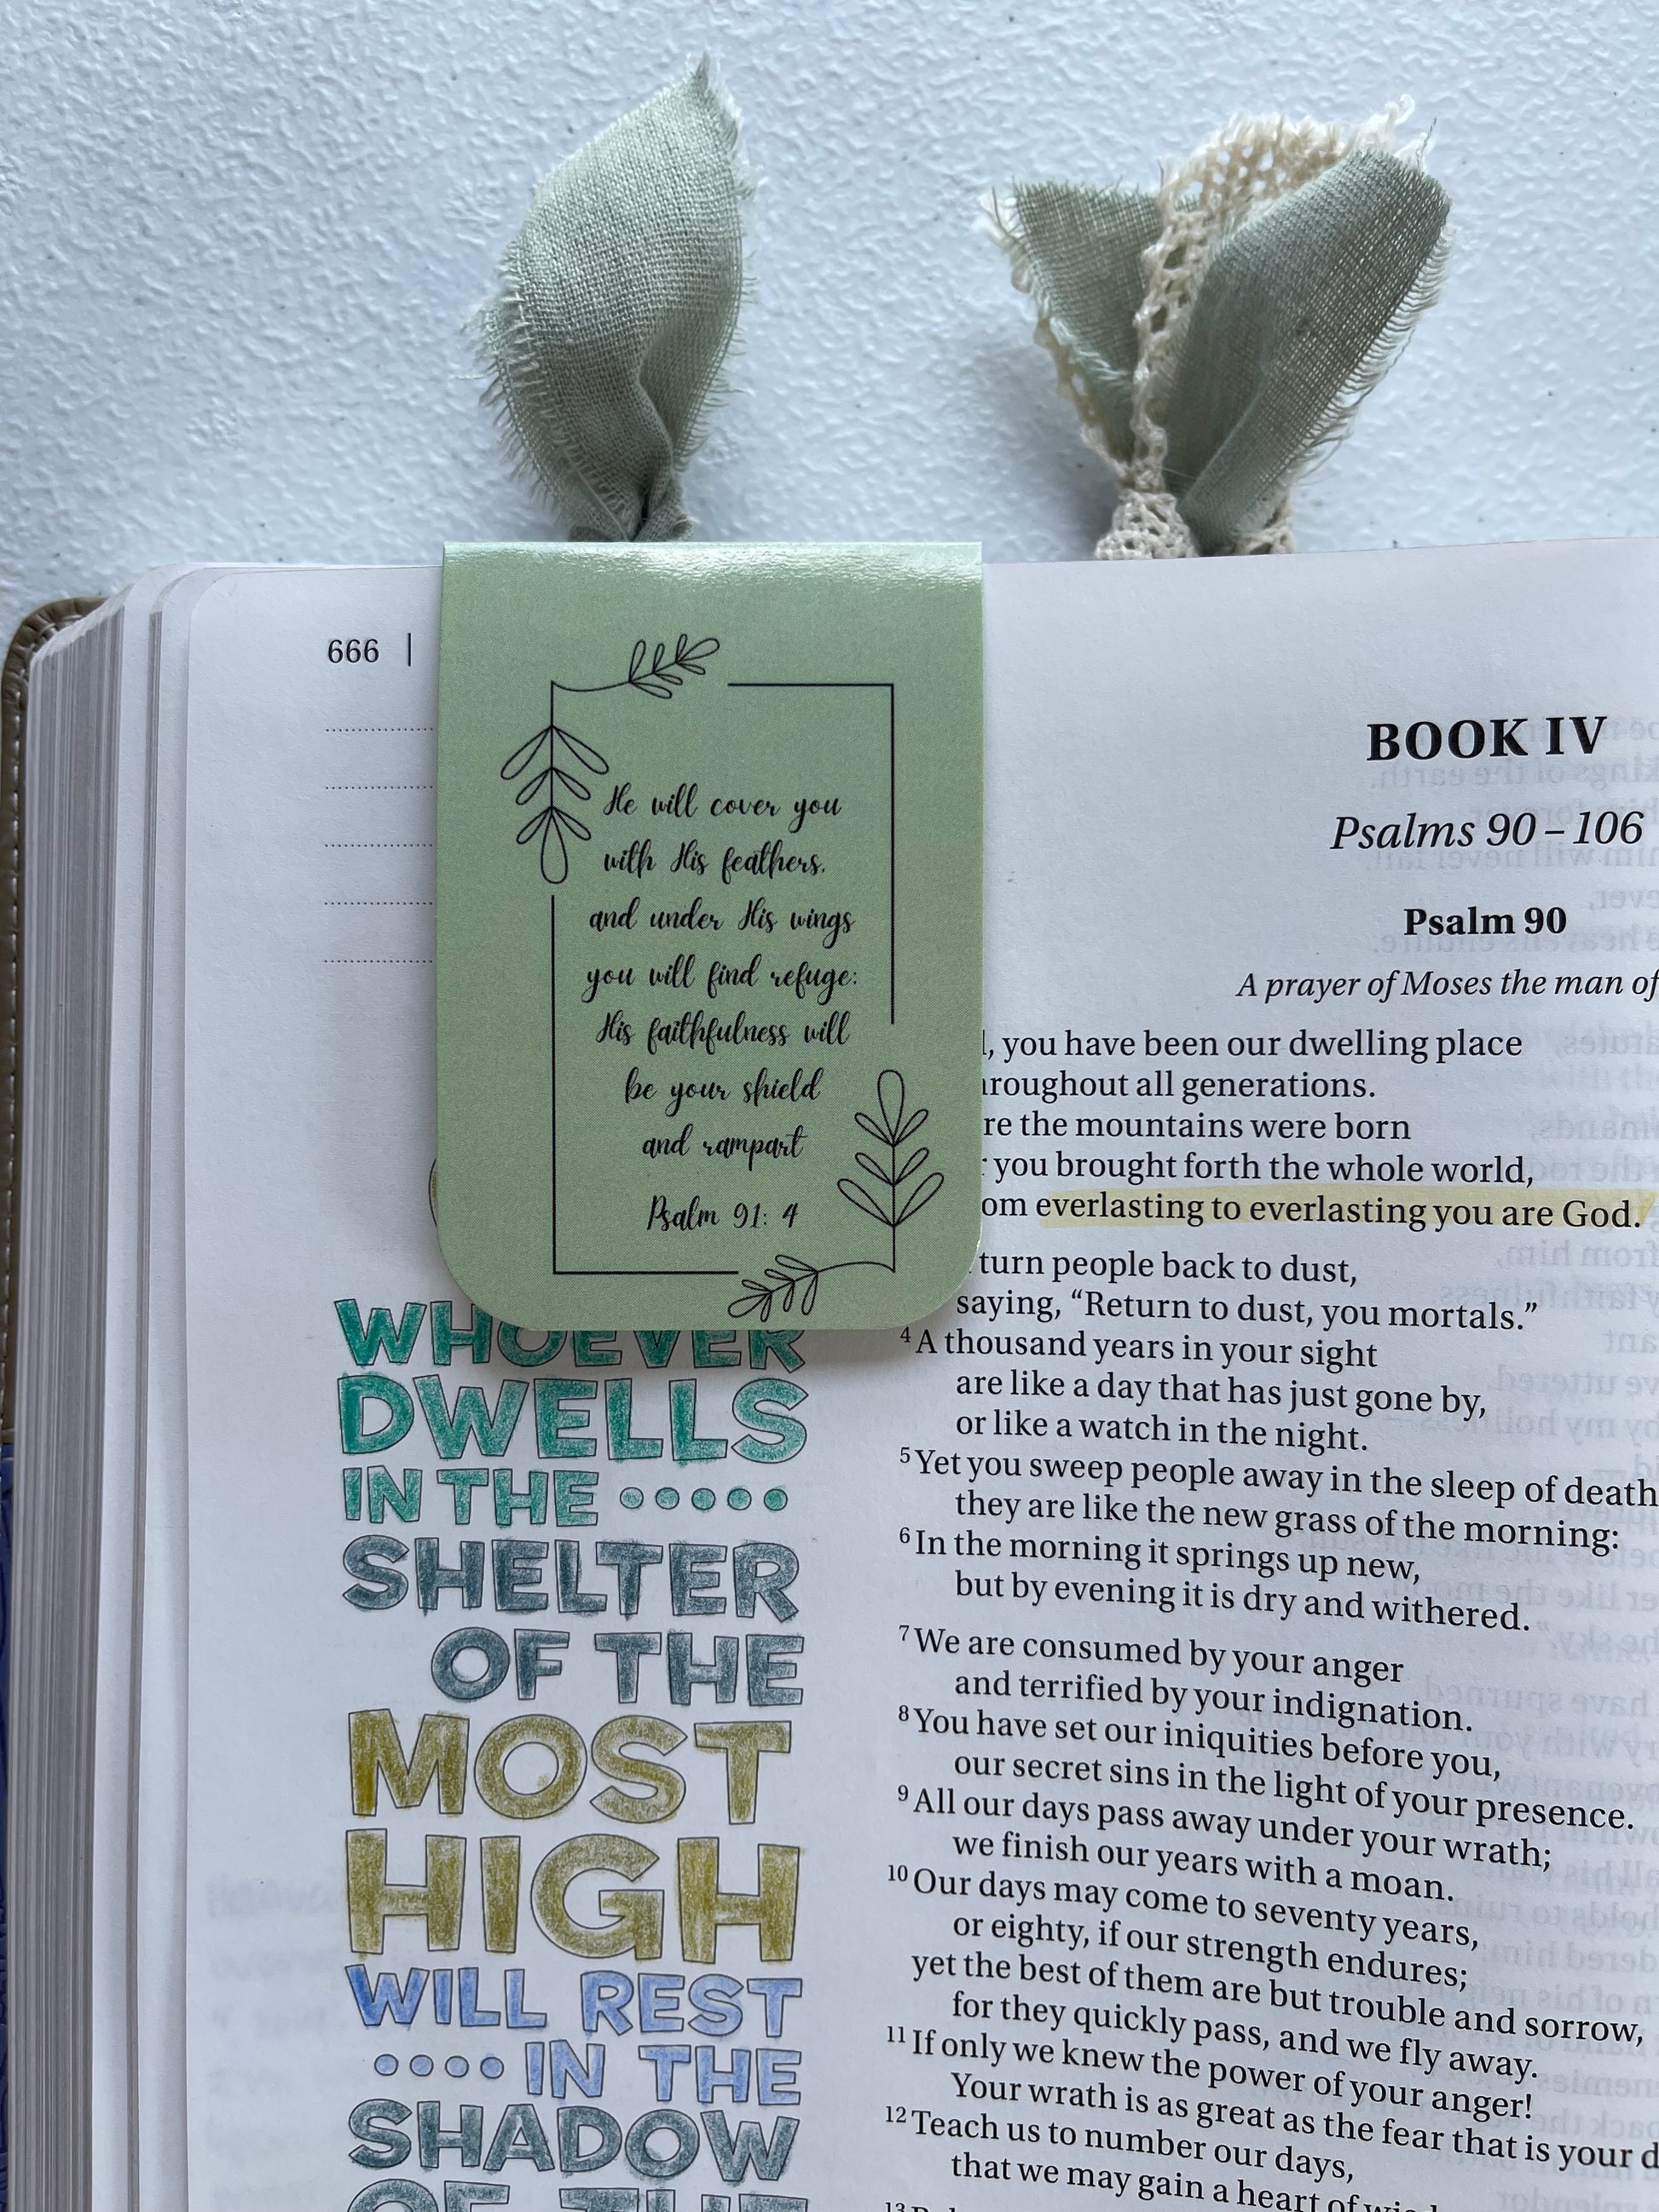 666 |
He will cover you
with His feathers,
and under His wings
you will find refuge:
His faithfulness will
be your shield
and rampart
Psalm 91: 4
WHOEVER
DWELLS
IN THE
SHELTER
OF THE
MOST
HIGH
WILL REST
IN THE
SHADOW
OF THE
BOOK IV
Psalms 90–106
Psalm 90
A prayer of Moses the man of
, you have been our dwelling place
roughout all generations.
re the mountains were born
you brought forth the whole world,
om everlasting to everlasting you are God.
turn people back to dust,
saying, “Return to dust, you mortals.”
4 A thousand years in your sight
are like a day that has just gone by,
or like a watch in the night.
5 Yet you sweep people away in the sleep of death
they are like the new grass of the morning:
6 In the morning it springs up new,
but by evening it is dry and withered.
7 We are consumed by your anger
and terrified by your indignation.
8 You have set our iniquities before you,
our secret sins in the light of your presence.
9 All our days pass away under your wrath;
we finish our years with a moan.
10 Our days may come to seventy years,
or eighty, if our strength endures;
yet the best of them are but trouble and sorrow,
for they quickly pass, and we fly away.
11 If only we knew the power of your anger!
Your wrath is as great as the fear that is your d
12 Teach us to number our days,
that we may gain a heart of
13